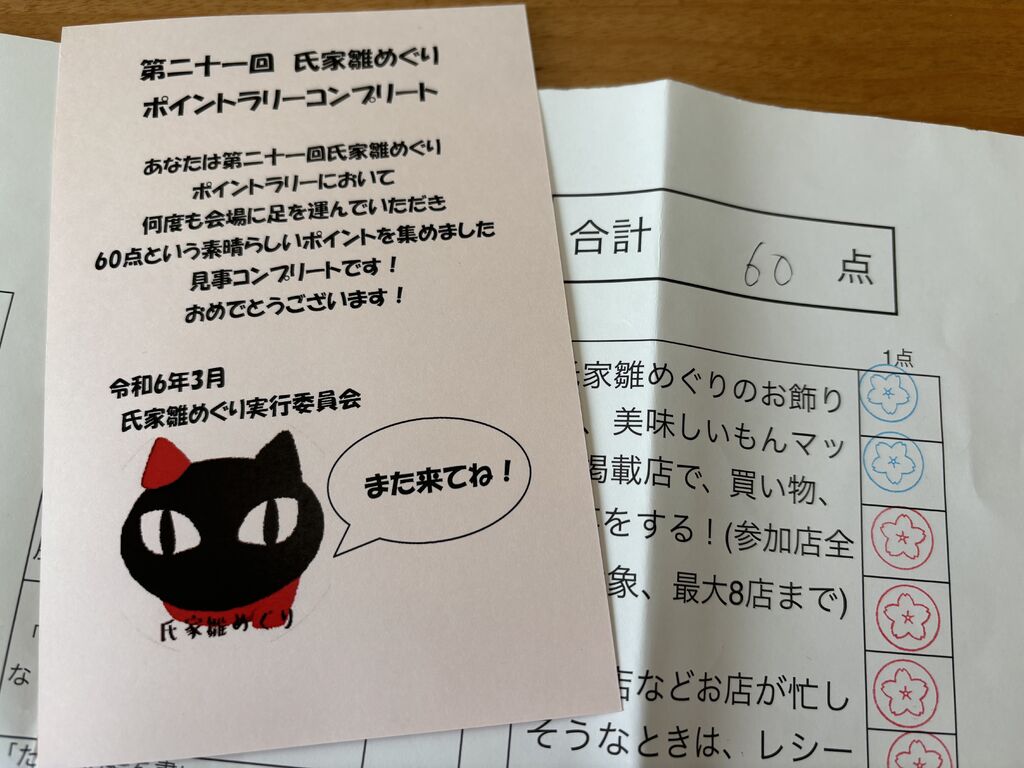 第二十一回 氏家雛めぐり
ポイントラリーコンプリート
あなたは第二十一回氏家雛めぐり
ポイントラリーにおいて
何度も会場に足を運んでいただき
60点という素晴らしいポイントを集めました
見事コンプリートです!
おめでとうございます!
令和6年3月
氏家雛めぐり実行委員会
また来てね!
氏家雛めぐり
合計 60 点
1点
氏家雛めぐりのお飾り
、美味しいもんマッ
掲載店で、買い物、
をする!(参加店全
象、最大8店まで)
店などお店が忙し
そうなときは、レシー
な
「た